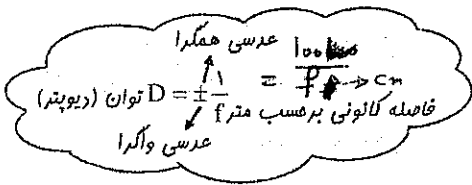 عدسی همگرا
توان (دیوپتر) D = ± 1/f = 100/f → cm
فاصله کانونی برحسب متر
عدسی واگرا